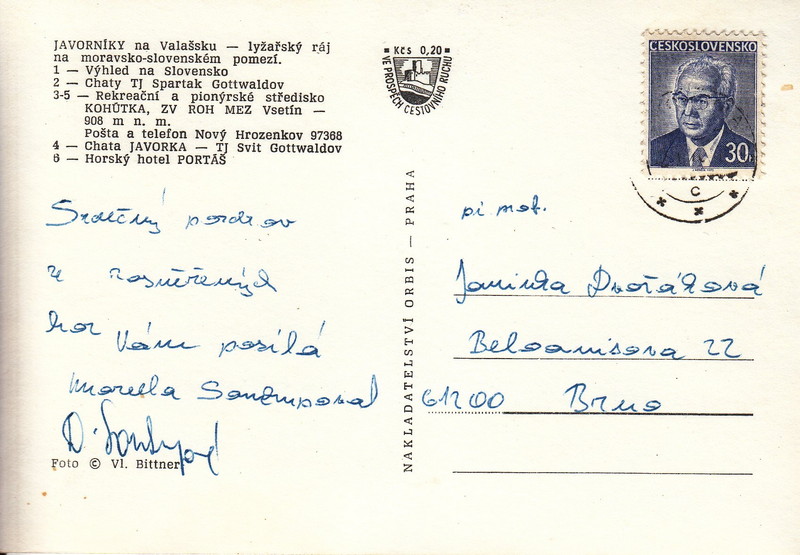 JAVORNÍKY na Valašsku — lyžařský ráj
na moravsko-slovenském pomezí.
1 — Výhled na Slovensko
2 — Chaty TJ Spartak Gottwaldov
3-5 — Rekreační a pionýrské středisko
KOHÚTKA, ZV ROH MEZ Vsetín —
908 m n. m.
Pošta a telefon Nový Hrozenkov 97368
4 — Chata JAVORKA — TJ Svit Gottwaldov
6 — Horský hotel PORTÁŠ
Srdečný pozdrav
z zasněžených
hor Vám posílá
Foto © Vl. Bittner
NAKLADATELSTVÍ ORBIS — PRAHA
Kčs 0,20
VE PROSPĚCH CESTOVNÍHO RUCHU
ČESKOSLOVENSKO
30
C
Dvořáková
22
61200 Brno